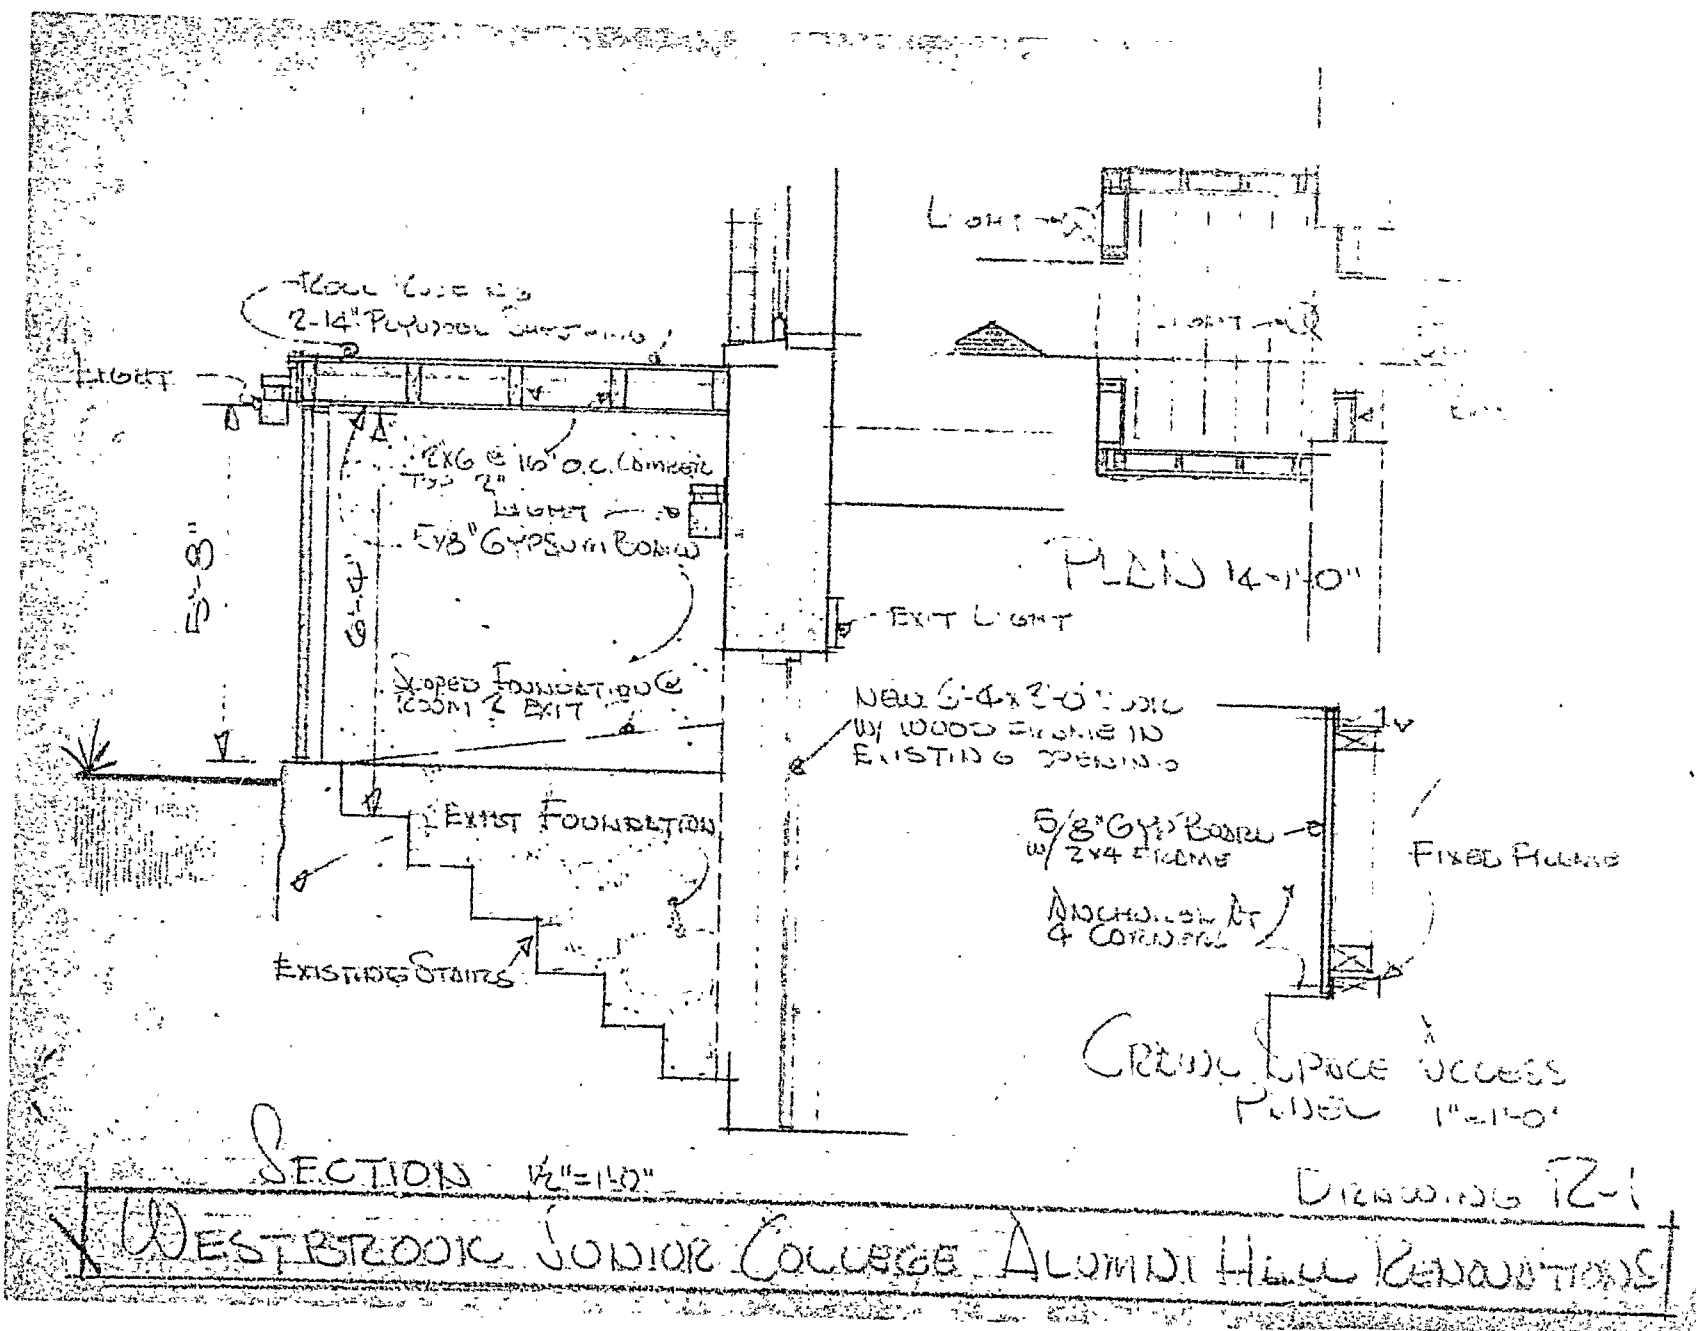 LIGHT
ROLL ROOFING
2-14" PLYWOOD SHEATHING
LIGHT
2X6 @ 16" O.C.
TYP 2"
LIGHT
5/8" GYPSUM BOARD
5'-8"
6'-4"
SLOPED FOUNDATION @
ROOM 2 EXIT
EXIST FOUNDATION
EXISTING STAIRS
LIGHT
PLAN 14-1'-0"
EXIT LIGHT
NEW 6'-4 x 2'-0"
W/ WOOD FRAME IN
EXISTING OPENING
5/8" GYP BOARD
W/ 2X4 FRAME
FIXED FRAME
AT
4 CORNERS
CRAWL SPACE ACCESS
PANEL 1"=1'-0"
SECTION 1/2"=1'-0"
DRAWING R-1
WESTBROOK JUNIOR COLLEGE ALUMNI HALL RENOVATIONS